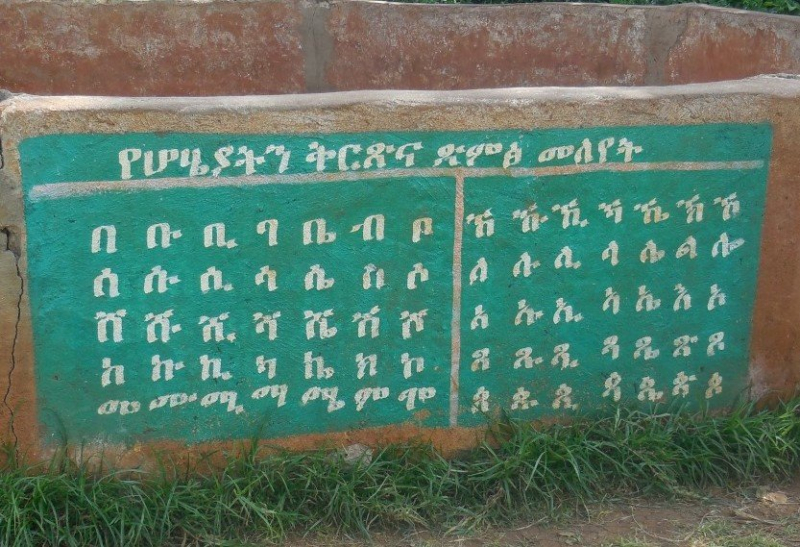 የሆሄያትን ቅርጽና ድምፅ መለየት
በ ቡ ቢ ባ ቤ ብ ቦ
ሰ ሱ ሲ ሳ ሴ ስ ሶ
ሸ ሹ ሺ ሻ ሼ ሽ ሾ
ከ ኩ ኪ ካ ኬ ክ ኮ
መ ሙ ሚ ማ ሜ ም ሞ
ኸ ኹ ኺ ኻ ኼ ኽ ኾ
ለ ሉ ሊ ላ ሌ ል ሎ
አ ኡ ኢ ኣ ኤ እ ኦ
ጸ ጹ ጺ ጻ ጼ ጽ ጾ
ጰ ጱ ጲ ጳ ጴ ጵ ጶ